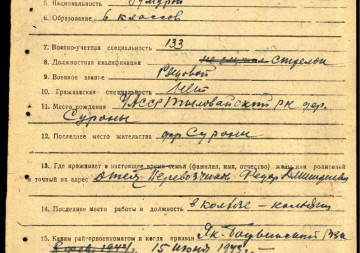 5. Национальность Удмурт
6. Образование 6 классов
7. Военно-учетная специальность 133
8. Должностная квалификация стрелок
9. Военное звание Рядовой
10. Гражданская специальность Нет
11. Место рождения УАССР РК дер.
Суроны
12. Последнее место жительства дер. Суроны
13. Где проживает в настоящее время семья (фамилия, имя, отчество) жены или родителей
и точный их адрес отец Перевозчик Федор
14. Последнее место работы и должность в колхозе - колхозник
15. Каким райвоенкоматом и когда призван РВК
15 июня 1943 г.